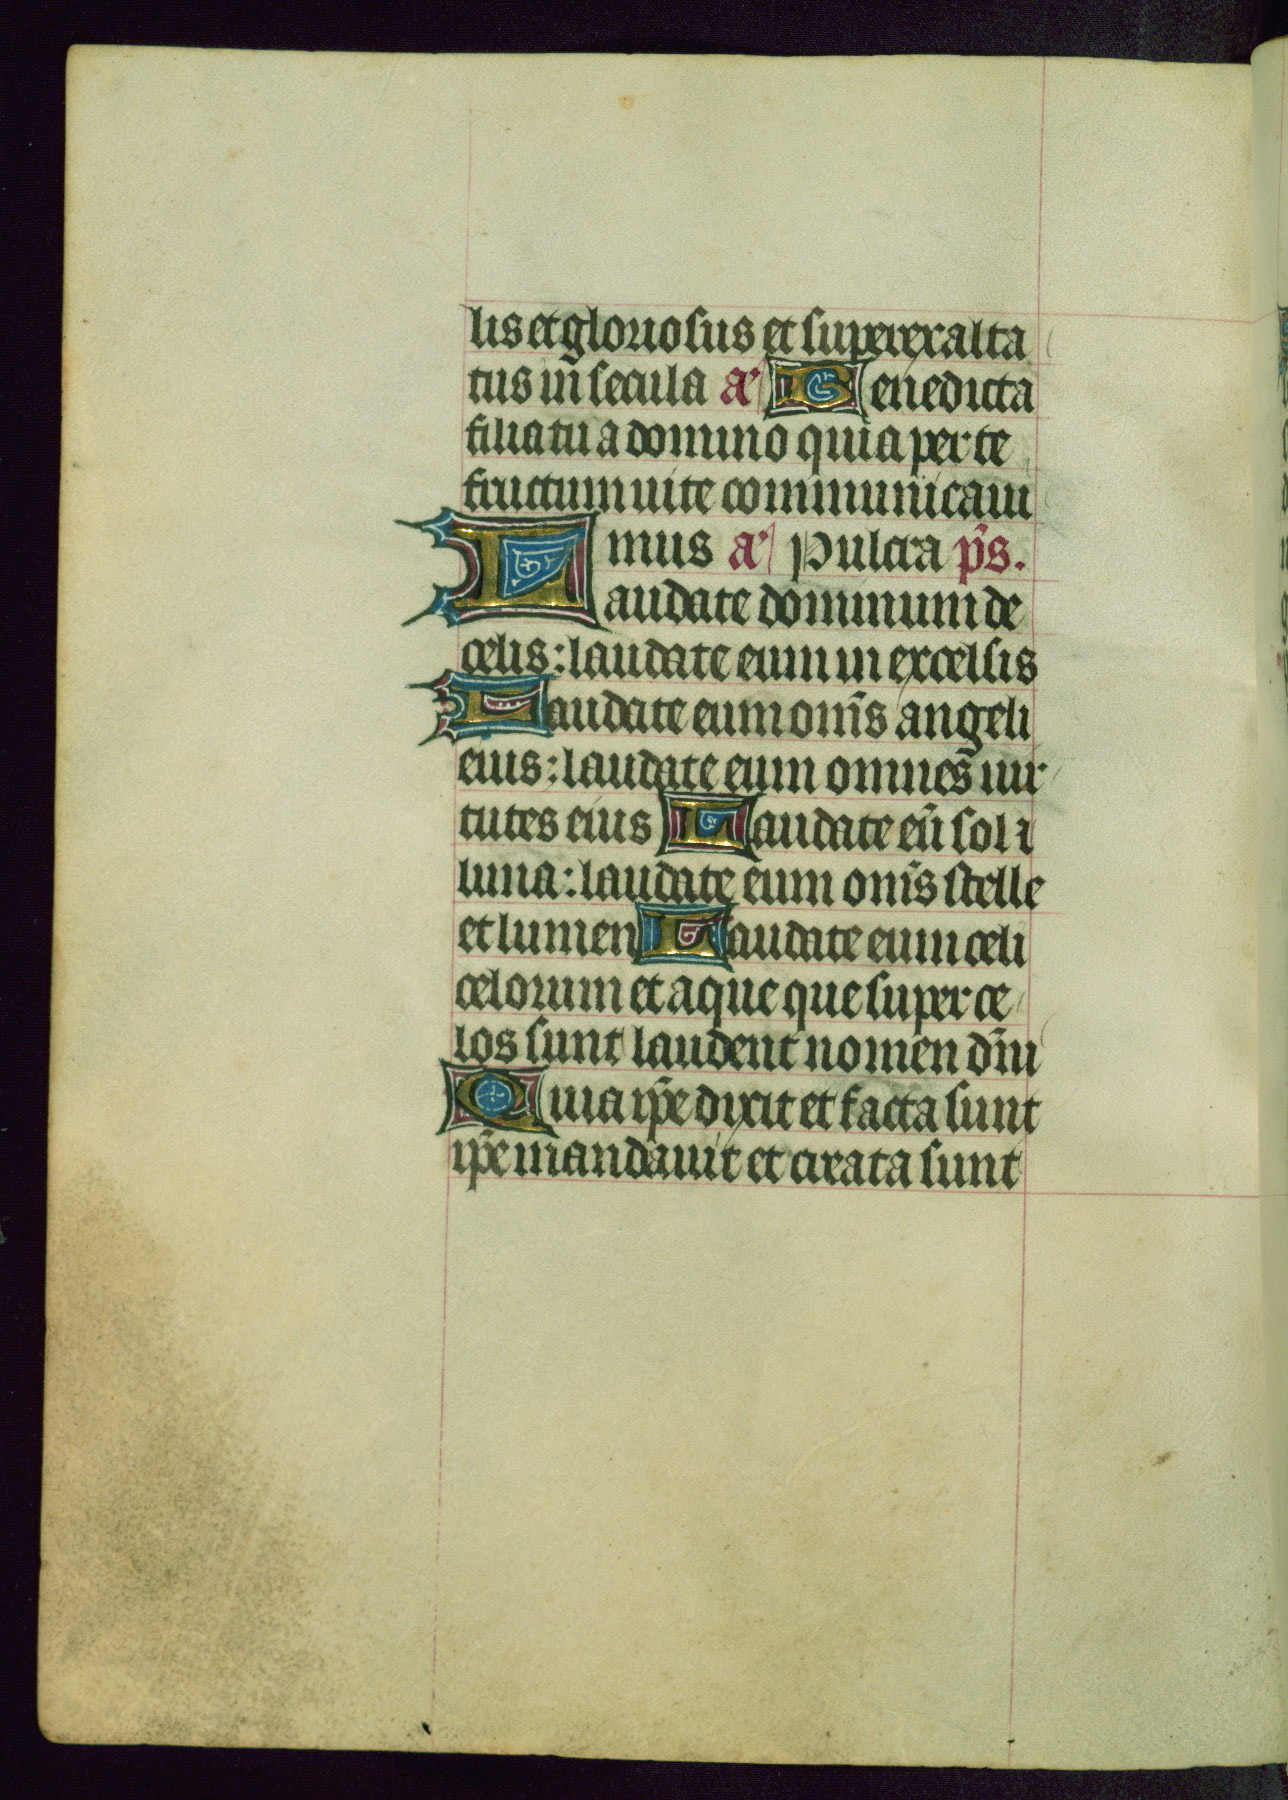 lis et gloriosus et superexalta
tus in secula a᷑ Benedicta
filia tu a domino quia per te
fructum uite communicaui
mus a᷑ Pulcra p̄s.
Laudate dominum de
celis: laudate eum in excelsis
Laudate eum om̄s angeli
eius: laudate eum omnes uir
tutes eius Laudate eū sol ⁊
luna: laudate eum om̄s stelle
et lumen Laudate eum celi
celorum et aque que super ce
los sunt laudent nomen dn̄i
Quia ip̄e dixit et facta sunt
ip̄e mandauit et creata sunt